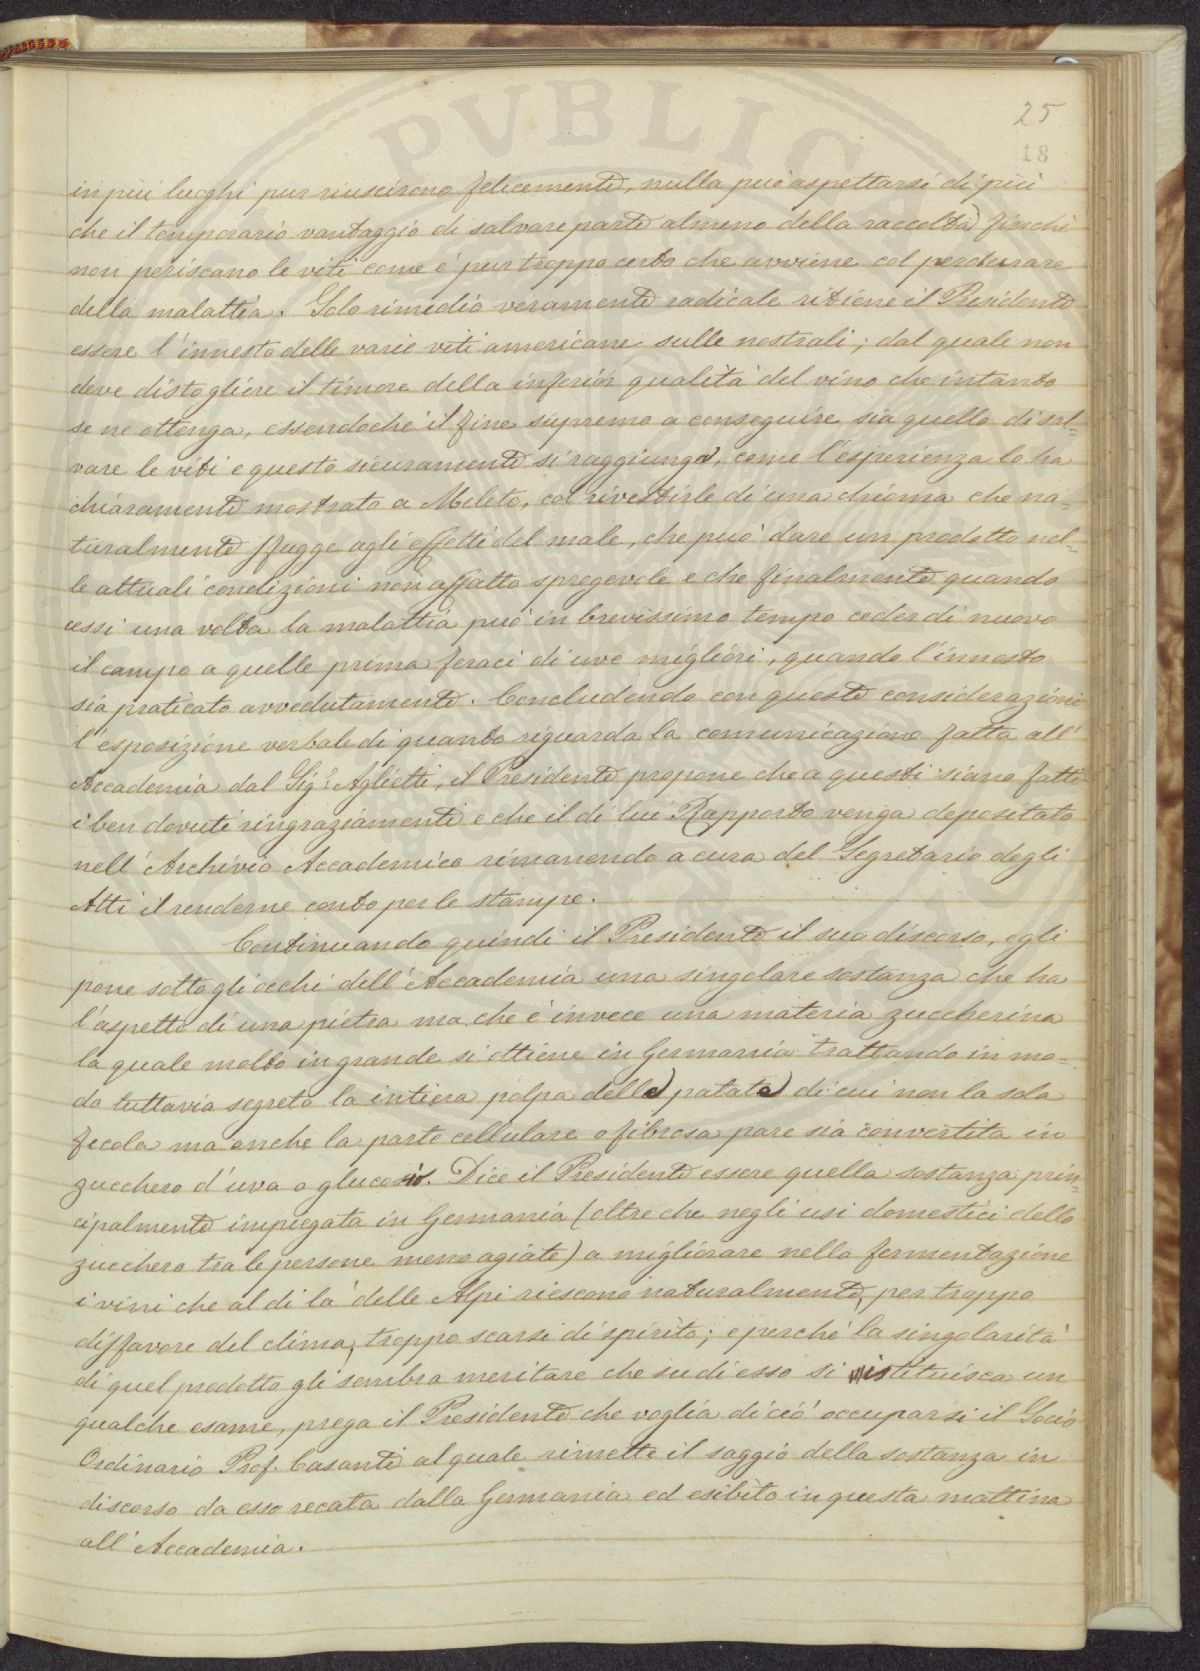 PVBLICA
25
18
in più luoghi pur riuscirono felicemente, nulla può aspettarsi di più
che il temporario vantaggio di salvare parte almeno della raccolta finchè
non periscano le viti come è pur troppo certo che avviene col perdurare
della malattia. Solo rimedio veramente radicale ritiene il Presidente
essere l'innesto delle varie viti americane sulle nostrali; dal quale non
deve distogliere il timore della inferior qualità del vino che intanto
se ne ottenga, essendochè il fine supremo a conseguire sia quello di sal=
vare le viti e questo sicuramente si raggiunga, come l'esperienza lo ha
chiaramente mostrato a Meleto, col rivestirle di una chioma che na=
turalmente sfugge agli effetti del male, che può dare un prodotto nel=
le attuali condizioni non affatto spregevole e che finalmente quando
cessi una volta la malattia può in brevissimo tempo ceder di nuovo
il campo a quelle prima feraci di uve migliori, quando l'innesto
sia praticato avvedutamente. Concludendo con queste considerazioni
l'esposizione verbale di quanto riguarda la comunicazione fatta all'
Accademia dal Sig.r Aglietti, il Presidente propone che a questi siano fatti
i ben dovuti ringraziamenti e che il di lui Rapporto venga depositato
nell'Archivio Accademico rimanendo a cura del Segretario degli
Atti il renderne conto per le stampe.
Continuando quindi il Presidente il suo discorso, egli
pone sotto gli occhi dell'Accademia una singolare sostanza che ha
l'aspetto di una pietra ma che è invece una materia zuccherina
la quale molto in grande si ottiene in Germania trattando in mo=
do tuttavia segreto la intiera polpa delle patate di cui non la sola
fecola ma anche la parte cellulare o fibrosa pare sia convertita in
zucchero d'uva o glucosio. Dice il Presidente essere quella sostanza prin=
cipalmente impiegata in Germania (oltre che negli usi domestici dello
zucchero tra le persone meno agiate) a migliorare nella fermentazione
i vini che al di là delle Alpi riescono naturalmente, per troppo
disfavore del clima, troppo scarsi di spirito; e perchè la singolarità
di quel prodotto gli sembra meritare che su di esso si istituisca un
qualche esame, prega il Presidente che voglia di ciò occuparsi il Socio
Ordinario Prof. Casanti al quale rimette il saggio della sostanza in
discorso da esso recata dalla Germania ed esibito in questa mattina
all'Accademia.